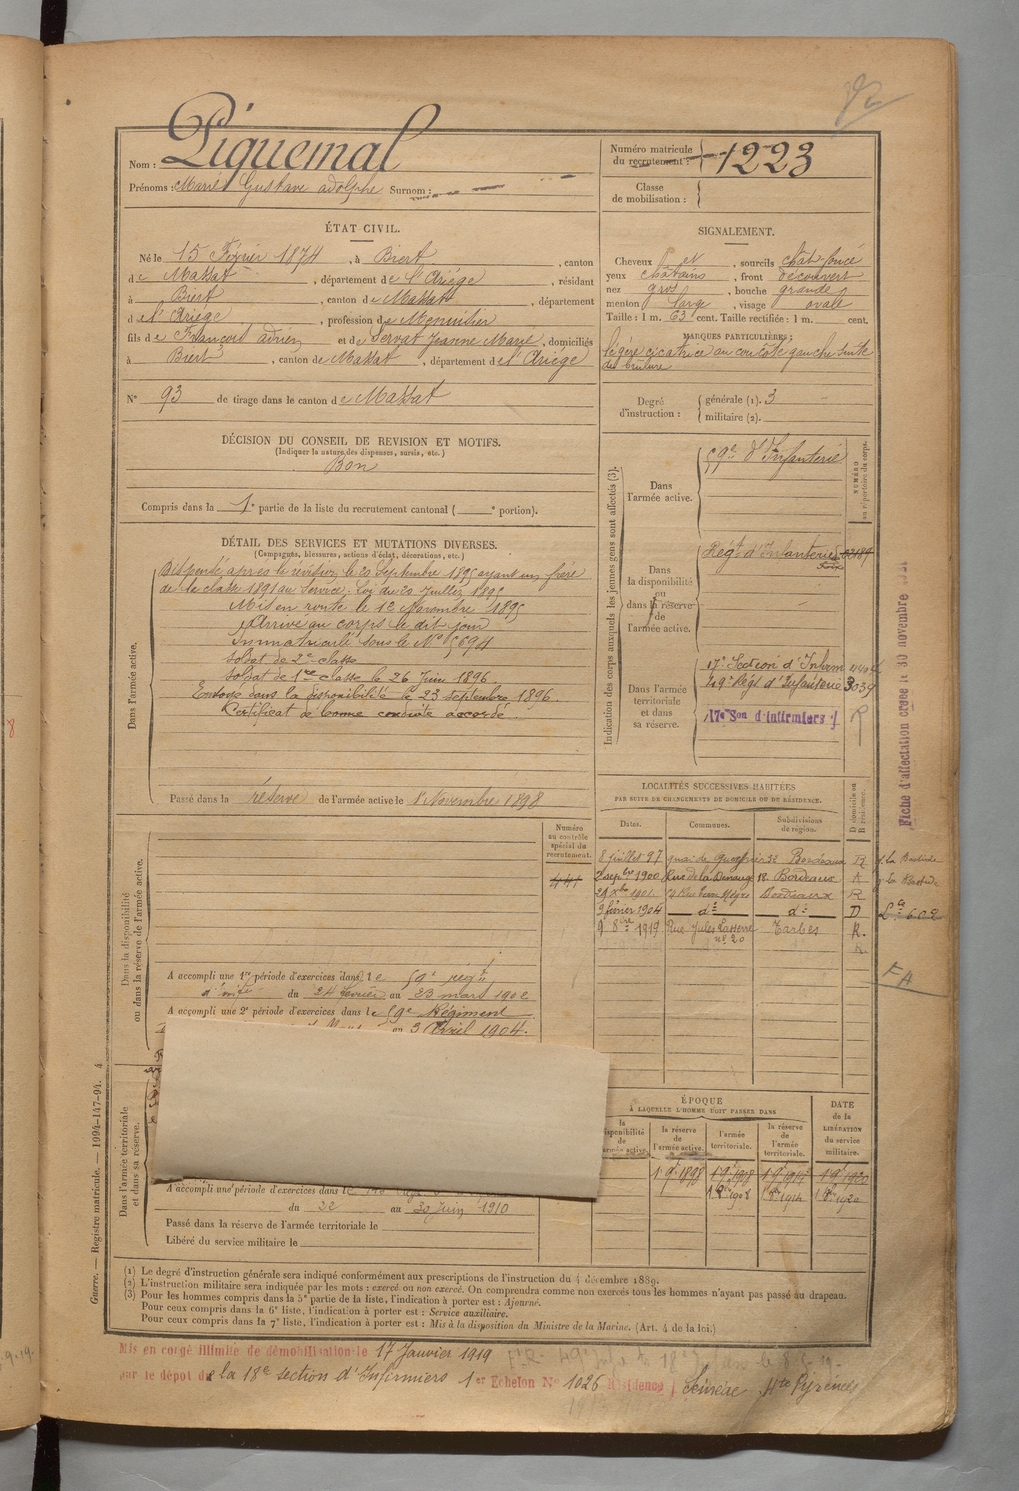 Nom : Piquemal
Prénoms : Marie Gustave adolphe Surnom :
Numéro matricule du recrutement : 1223
Classe de mobilisation :
ÉTAT CIVIL.
Né le 15 Février 1874, à Biert, canton
de Massat, département de l'Ariège, résidant
à Biert, canton de Massat, département
de l'Ariège, profession de Menuisier
fils de François adrien et de Servat Jeanne Marie, domiciliés
à Biert, canton de Massat, département de l'Ariège
N° 93 de tirage dans le canton de Massat
SIGNALEMENT.
Cheveux et, sourcils chât foncé
yeux châtains, front découvert
nez gros, bouche grande
menton large, visage ovale
Taille : 1 m. 63 cent. Taille rectifiée : 1 m. cent.
MARQUES PARTICULIÈRES :
légère cicatrice au cou côté gauche suite
de brûlure
Degré d'instruction : générale (1). 3
militaire (2).
DÉCISION DU CONSEIL DE REVISION ET MOTIFS.
(Indiquer la nature des dispenses, sursis, etc.)
Bon
Compris dans la 1e partie de la liste du recrutement cantonal ( e portion).
DÉTAIL DES SERVICES ET MUTATIONS DIVERSES.
(Campagnes, blessures, actions d'éclat, décorations, etc.)
Dans l'armée active.
Dispensé après la révision le 20 Septembre 1895 ayant un frère
de la classe 1891 au Service. Loi du 20 Juillet 1895
Mis en route le 12 Novembre 1895
Arrivé au corps le dit jour
Immatriculé sous le N° 5694
Soldat de 2e classe
Soldat de 1re classe le 26 Juin 1896
Envoyé dans la disponibilité le 23 septembre 1896.
Certificat de bonne conduite accordé
Passé dans la réserve de l'armée active le 1 Novembre 1898
Indication des corps auxquels les jeunes gens sont affectés (3).
NUMÉRO au répertoire du corps.
Dans l'armée active.
59e d'Infanterie
Dans la disponibilité ou dans la réserve de l'armée active.
Régt d'Infanterie
Dans l'armée territoriale et dans sa réserve.
17e Section d'Infirm
Régt d'Infanterie
17e Son d'infirmiers
R
Fiche d'affectation créée le 30 novembre
LOCALITÉS SUCCESSIVES HABITÉES
PAR SUITE DE CHANGEMENTS DE DOMICILE OU DE RÉSIDENCE.
Dates. Communes. Subdivisions de région. D domicile ou R résidence.
8 juillet 97 quai de 32 Bordeaux R
2 sepbre 1900 Rue de la Benauge 18 Bordeaux
Bordeaux R
9 février 1904 do do D
9 8bre 1919 Rue Jules Lasserre n° 20 Tarbes R.
FA
Numéro au contrôle spécial du recrutement.
441
Dans la disponibilité ou dans la réserve de l'armée active.
A accompli une 1re période d'exercices dans le 59e regt
d'infie du 24 février au 23 mars 1902
A accompli une 2e période d'exercices dans le 59e Régiment
au 3 Avril 1904.
Dans l'armée territoriale et dans sa réserve.
A accompli une période d'exercices dans le
du 22 au 30 Juin 1910
Passé dans la réserve de l'armée territoriale le
Libéré du service militaire le
ÉPOQUE
À LAQUELLE L'HOMME DOIT PASSER DANS
la réserve de l'armée active. l'armée territoriale. la réserve de l'armée territoriale.
DATE de la LIBÉRATION du service militaire.
1 9e 1898 1 9e 1908
1 8e 1908 1 8e 1914 1 8e 1920
(1) Le degré d'instruction générale sera indiqué conformément aux prescriptions de l'instruction du 4 décembre 1889.
(2) L'instruction militaire sera indiquée par les mots : exercé ou non exercé. On comprendra comme non exercés tous les hommes n'ayant pas passé au drapeau.
(3) Pour les hommes compris dans la 5e partie de la liste, l'indication à porter est : Ajourné.
Pour ceux compris dans la 6e liste, l'indication à porter est : Service auxiliaire.
Pour ceux compris dans la 7e liste, l'indication à porter est : Mis à la disposition du Ministre de la Marine. (Art. 4 de la loi.)
Guerre. — Registre matricule. — 1994-147-94. 4
Mis en congé illimité de démobilisation le 17 Janvier 1919
par le dépôt de la 18e section d'Infirmiers 1er Echelon N° 1026 Résidence Hte Pyrénées